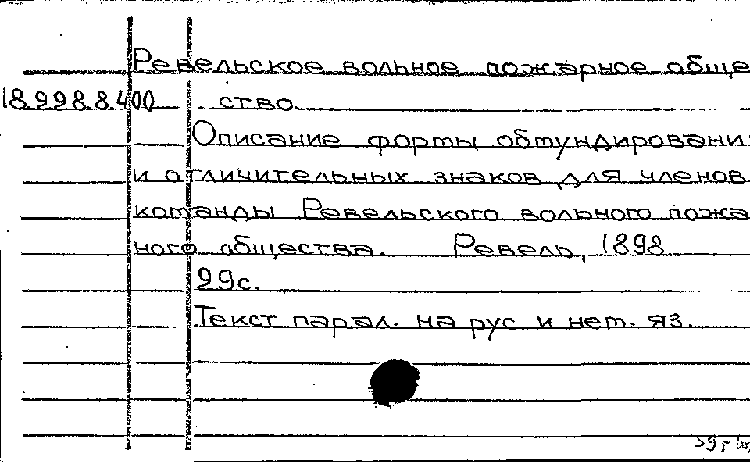 Ревельское вольное пожарное обще
18998.8400 ство.
Описание формы обмундировани
и отличительных знаков для членов
команды Ревельского вольного пожа
ного общества. Ревель, 1898
29с.
Текст парал. на рус и нем. яз.